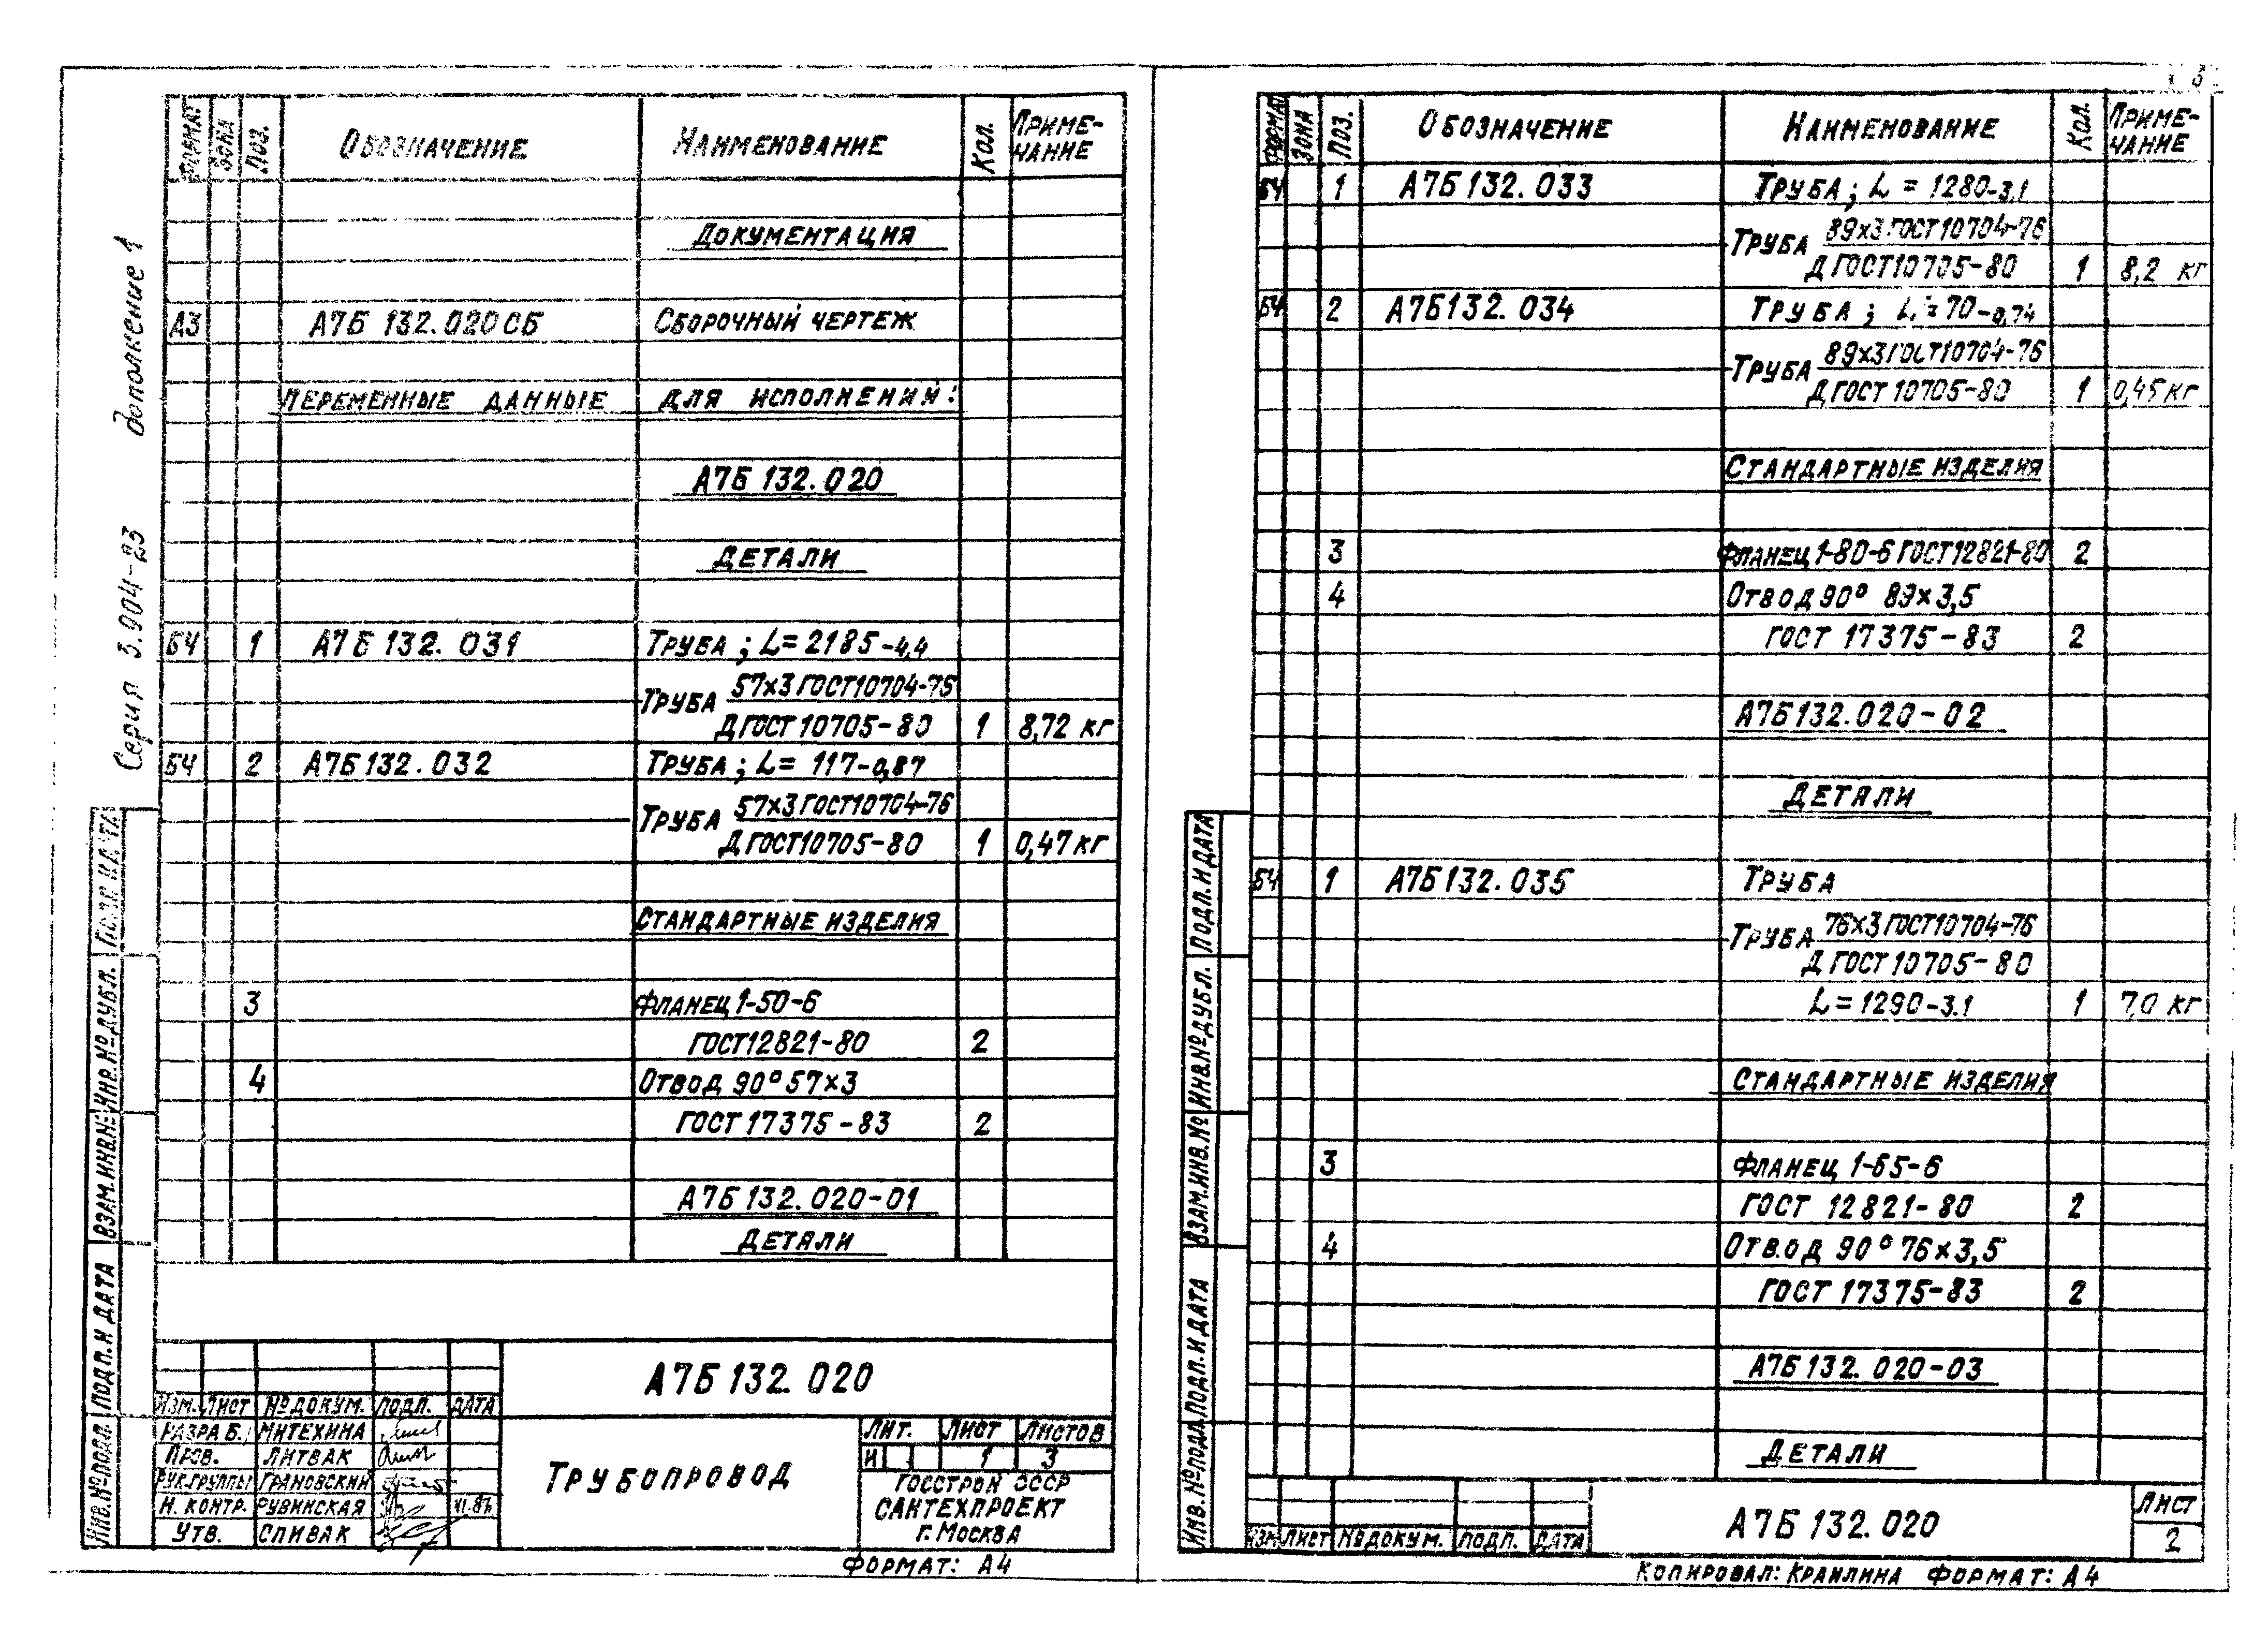 Серия 3.904-23 дополнение 1
ФОРМАТ ЗОНА ПОЗ. ОБОЗНАЧЕНИЕ НАИМЕНОВАНИЕ КОЛ. ПРИМЕ-ЧАНИЕ
ДОКУМЕНТАЦИЯ
А3 А7Б 132.020СБ СБОРОЧНЫЙ ЧЕРТЕЖ
ПЕРЕМЕННЫЕ ДАННЫЕ ДЛЯ ИСПОЛНЕНИЙ:
А7Б 132.020
ДЕТАЛИ
БЧ 1 А7Б 132.031 ТРУБА; L=2185-4,4
ТРУБА 57×3 ГОСТ10704-76
Д ГОСТ 10705-80 1 8,72 кг
БЧ 2 А7Б132.032 ТРУБА; L= 117-0,87
ТРУБА 57×3 ГОСТ10704-76
Д ГОСТ10705-80 1 0,47 кг
СТАНДАРТНЫЕ ИЗДЕЛИЯ
3 ФЛАНЕЦ 1-50-6
ГОСТ12821-80 2
4 ОТВОД 90° 57×3
ГОСТ 17375-83 2
А7Б 132.020-01
ДЕТАЛИ
ИНВ.№ПОДЛ. ПОДП.И ДАТА ВЗАМ.ИНВ.№ ИНВ.№ДУБЛ. ПОДП.И ДАТА
А7Б 132.020
ИЗМ. ЛИСТ №ДОКУМ. ПОДП. ДАТА
РАЗРАБ. МИТЕХИНА
ПРОВ. ЛИТВАК
РУК.ГРУППЫ ГРАНОВСКИЙ
Н. КОНТР. РУВИНСКАЯ
УТВ. СПИВАК
ТРУБОПРОВОД
ЛИТ. ЛИСТ ЛИСТОВ
И 1 3
ГОССТРОЙ СССР
САНТЕХПРОЕКТ
г. МОСКВА
ФОРМАТ: А4
3
ФОРМАТ ЗОНА ПОЗ. ОБОЗНАЧЕНИЕ НАИМЕНОВАНИЕ КОЛ. ПРИМЕ-ЧАНИЕ
БЧ 1 А7Б 132.033 ТРУБА; L = 1280-3,1
ТРУБА 89×3 ГОСТ10704-76
Д ГОСТ10705-80 1 8,2 кг
БЧ 2 А7Б132.034 ТРУБА; L=70-0,74
ТРУБА 89×3 ГОСТ10704-76
Д ГОСТ 10705-80 1 0,45 кг
СТАНДАРТНЫЕ ИЗДЕЛИЯ
3 ФЛАНЕЦ 1-80-6 ГОСТ12821-80 2
4 ОТВОД 90° 89×3,5
ГОСТ 17375-83 2
А7Б132.020-02
ДЕТАЛИ
БЧ 1 А7Б132.035 ТРУБА
ТРУБА 76×3 ГОСТ10704-76
Д ГОСТ 10705-80
L=1290-3.1 1 7,0 кг
СТАНДАРТНЫЕ ИЗДЕЛИЯ
3 ФЛАНЕЦ 1-65-6
ГОСТ 12821-80 2
4 ОТВОД 90° 76×3,5
ГОСТ 17375-83 2
А7Б132.020-03
ДЕТАЛИ
ИНВ.№ПОДЛ. ПОДП.И ДАТА ВЗАМ.ИНВ.№ ИНВ.№ДУБЛ. ПОДП.И ДАТА
ИЗМ ЛИСТ №ДОКУМ. ПОДП. ДАТА
А7Б 132.020
ЛИСТ
2
КОПИРОВАЛ: КРАИЛИНА ФОРМАТ: А4